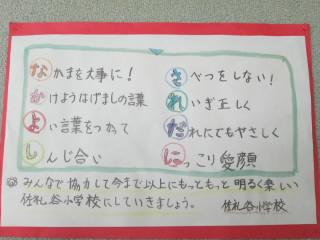 なかまを大事に！
かけようはげましの言葉
よい言葉をつかって
しんじ合い
さべつをしない！
れいぎ正しく
だれにでもやさしく
にっこり愛顔
みんなで協力して今まで以上にもっともっと明るく楽しい
佐礼谷小学校にしていきましょう。
佐礼谷小学校